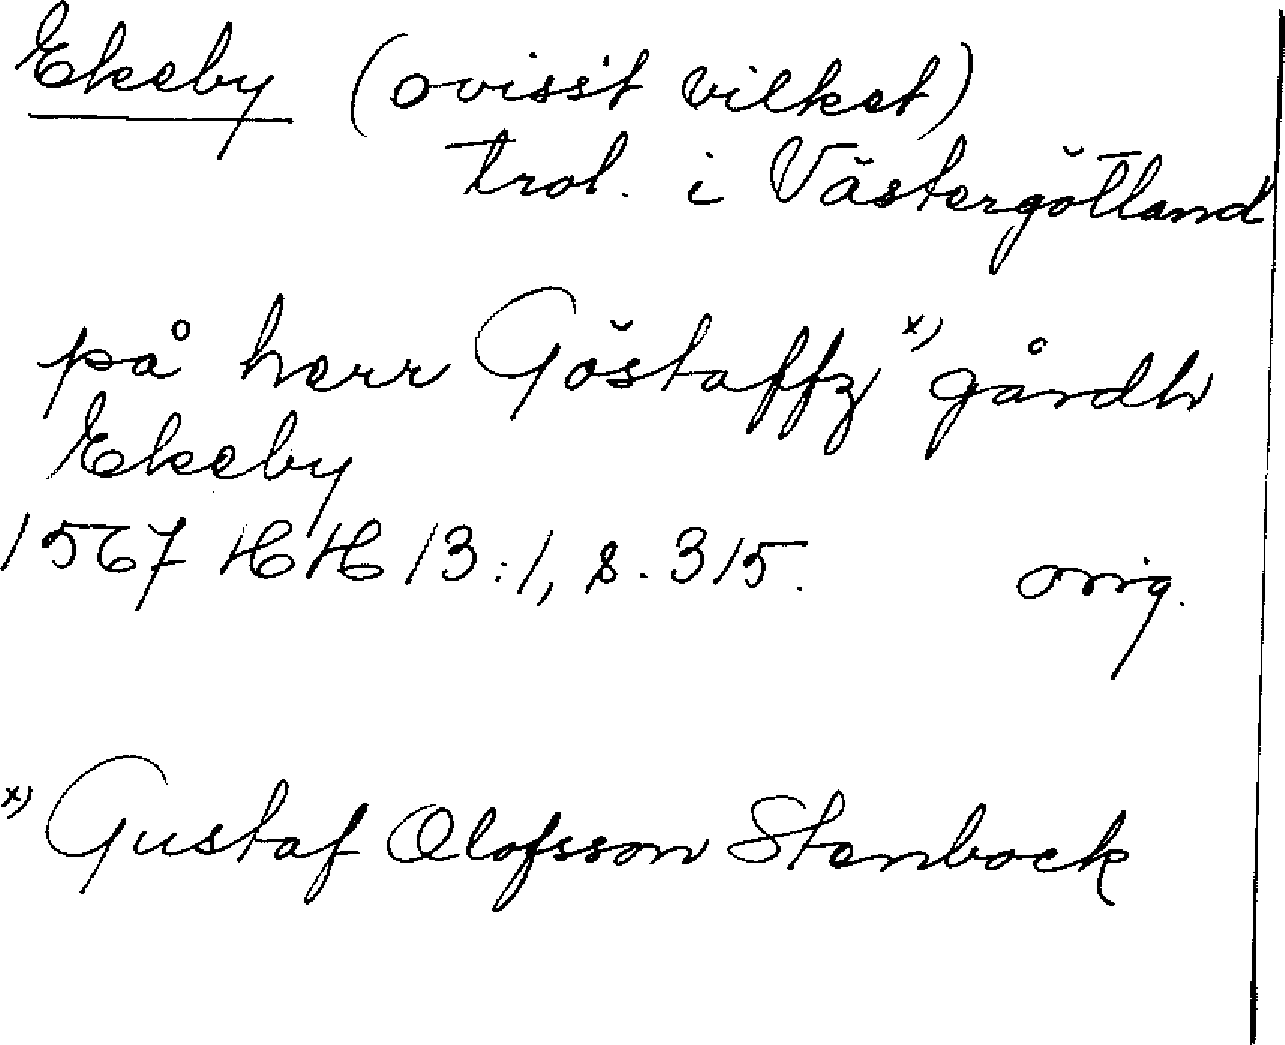 Ekeby (ovisst vilket)
trol. i Västergötland
på herr Göstaffz x) gårdh
Ekeby
1567 HH 13:1, s. 315. orig.
x) Gustaf Olofsson Stenbock